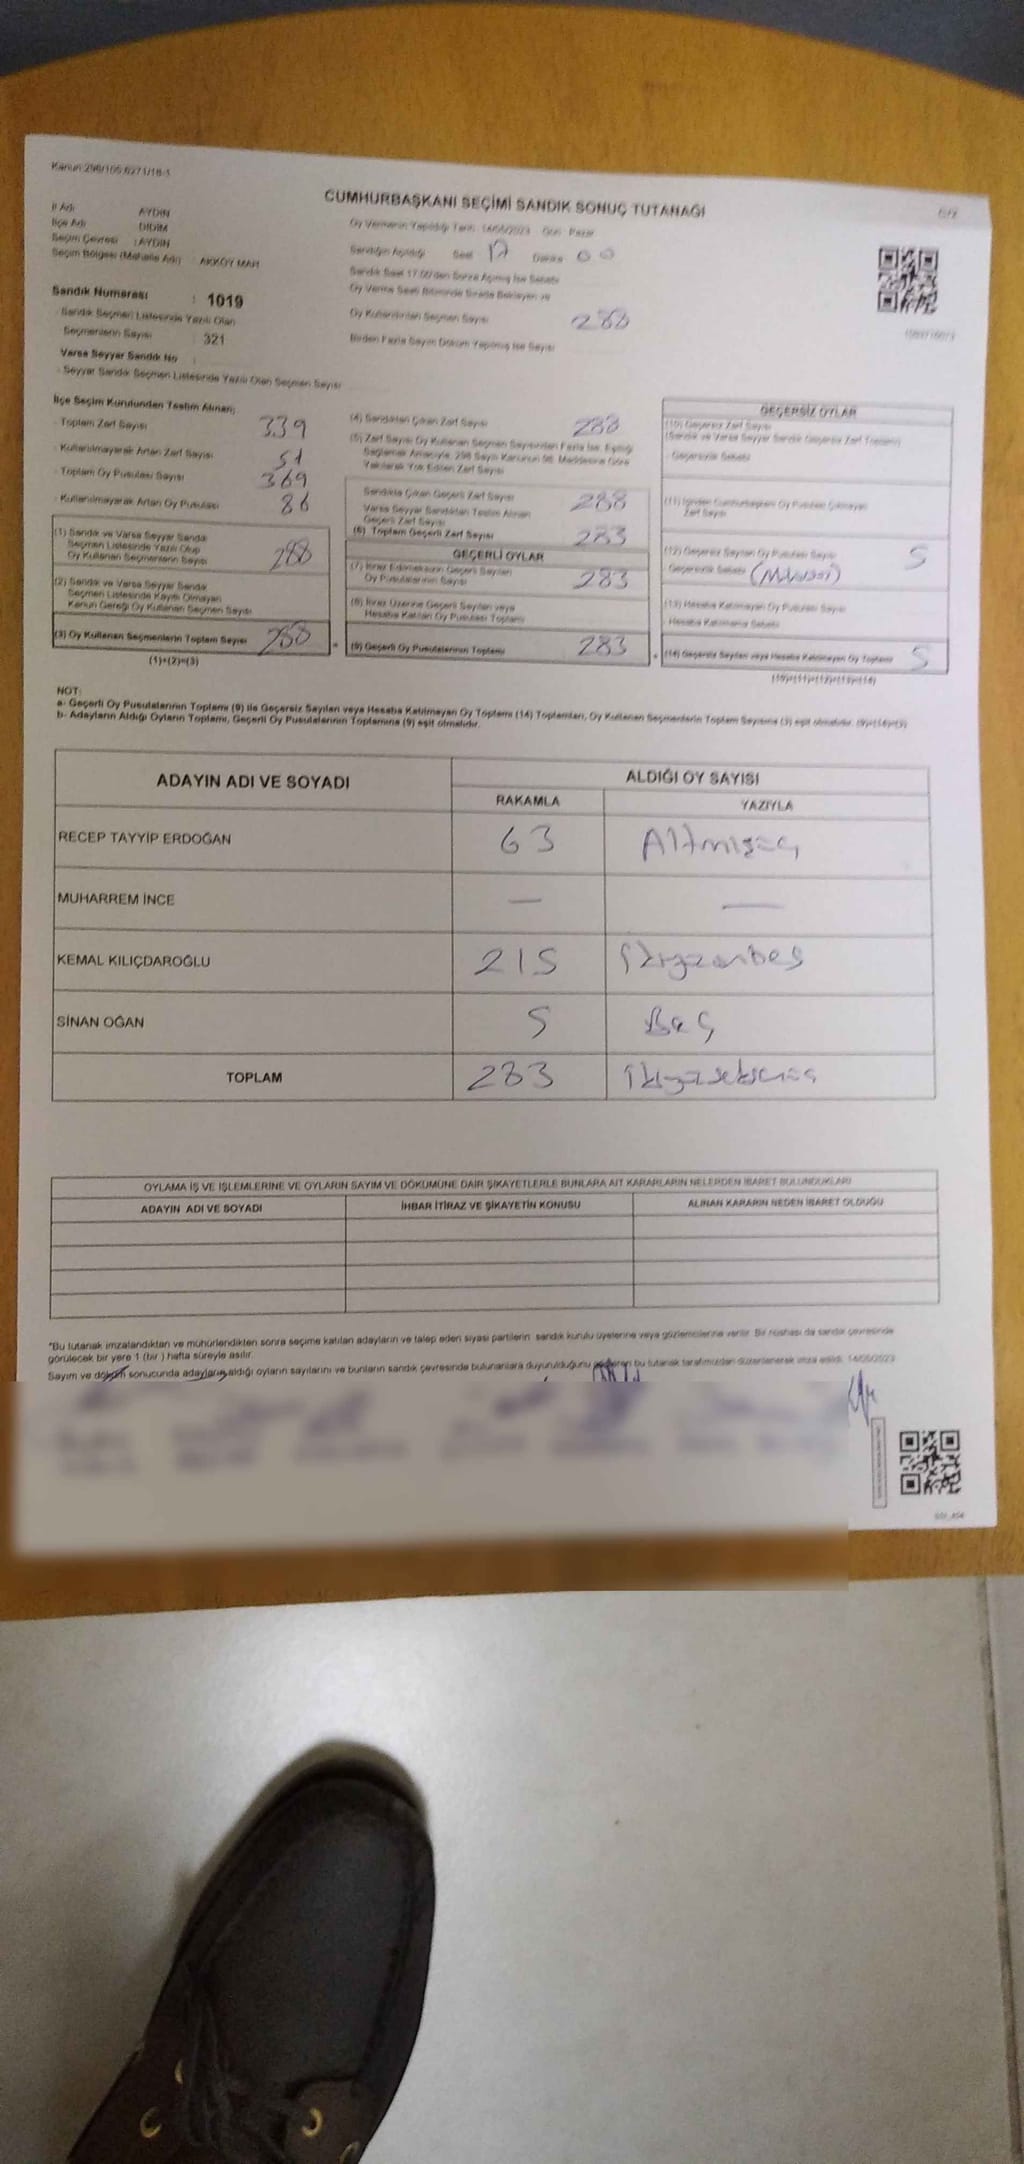 Kanun:298/105;6271/18-1
CUMHURBAŞKANI SEÇİMİ SANDIK SONUÇ TUTANAĞI
İl Adı AYDIN
İlçe Adı DİDİM
Seçim Çevresi : AYDIN
Seçim Bölgesi (Mahalle Adı) : AKKÖY MAH
Oy Vermenin Yapıldığı Tarih 14/05/2023 Gün: Pazar
Sandığın Açıldığı Saat 17 Dakika 00
Sandık Saat 17.00'den Sonra Açılmış İse Sebebi
Oy Verme Saati Bitiminde Sırada Bekleyen ve
Oy Kullandırılan Seçmen Sayısı 288
Birden Fazla Sayım Döküm Yapılmış İse Sayısı
Sandık Numarası : 1019
- Sandık Seçmen Listesinde Yazılı Olan
Seçmenlerin Sayısı : 321
Varsa Seyyar Sandık No :
- Seyyar Sandık Seçmen Listesinde Yazılı Olan Seçmen Sayısı
İlçe Seçim Kurulundan Teslim Alınan;
- Toplam Zarf Sayısı 339
- Kullanılmayarak Artan Zarf Sayısı 51
- Toplam Oy Pusulası Sayısı 369
- Kullanılmayarak Artan Oy Pusulası 86
(1) Sandık ve Varsa Seyyar Sandık
Seçmen Listesinde Yazılı Olup
Oy Kullanan Seçmenlerin Sayısı 288
(2) Sandık ve Varsa Seyyar Sandık
Seçmen Listesinde Kayıtlı Olmayan
Kanun Gereği Oy Kullanan Seçmen Sayısı
(3) Oy Kullanan Seçmenlerin Toplam Sayısı 288
(1)+(2)=(3)
(4) Sandıktan Çıkan Zarf Sayısı 288
(5) Zarf Sayısı Oy Kullanan Seçmen Sayısından Fazla İse, Eşitliği
Sağlamak Amacıyla, 298 Sayılı Kanunun 98. Maddesine Göre
Yakılarak Yok Edilen Zarf Sayısı
Sandıkta Çıkan Geçerli Zarf Sayısı 288
Varsa Seyyar Sandıktan Teslim Alınan
Geçerli Zarf Sayısı
(6) Toplam Geçerli Zarf Sayısı 283
GEÇERLİ OYLAR
(7) İtiraz Edilmeksizin Geçerli Sayılan
Oy Pusulalarının Sayısı 283
(8) İtiraz Üzerine Geçerli Sayılan veya
Hesaba Katılan Oy Pusulası Toplamı
(9) Geçerli Oy Pusulalarının Toplamı 283
GEÇERSİZ OYLAR
(10) Geçersiz Zarf Sayısı
(Sandık ve Varsa Seyyar Sandık Geçersiz Zarf Toplamı)
- Geçersizlik Sebebi
(11) İçinden Cumhurbaşkanı Oy Pusulası Çıkmayan
Zarf Sayısı
(12) Geçersiz Sayılan Oy Pusulası Sayısı 5
Geçersizlik Sebebi
(13) Hesaba Katılmayan Oy Pusulası Sayısı
- Hesaba Katılmama Sebebi
(14) Geçersiz Sayılan veya Hesaba Katılmayan Oy Toplamı 5
(10)+(11)+(12)+(13)=(14)
NOT:
a- Geçerli Oy Pusulalarının Toplamı (9) ile Geçersiz Sayılan veya Hesaba Katılmayan Oy Toplamı (14) Toplamları, Oy Kullanan Seçmenlerin Toplam Sayısına (3) eşit olmalıdır. (9)+(14)=(3)
b- Adayların Aldığı Oyların Toplamı, Geçerli Oy Pusulalarının Toplamına (9) eşit olmalıdır.
ADAYIN ADI VE SOYADI ALDIĞI OY SAYISI
RAKAMLA YAZIYLA
RECEP TAYYİP ERDOĞAN 63 Altmışüç
MUHARREM İNCE — —
KEMAL KILIÇDAROĞLU 215 İkiyüzonbeş
SİNAN OĞAN 5 Beş
TOPLAM 283 İkiyüzseksenüç
OYLAMA İŞ VE İŞLEMLERİNE VE OYLARIN SAYIM VE DÖKÜMÜNE DAİR ŞİKAYETLERLE BUNLARA AİT KARARLARIN NELERDEN İBARET BULUNDUKLARI
ADAYIN ADI VE SOYADI İHBAR İTİRAZ VE ŞİKAYETİN KONUSU ALINAN KARARIN NEDEN İBARET OLDUĞU
*Bu tutanak imzalandıktan ve mühürlendikten sonra seçime katılan adayların ve talep eden siyasi partilerin sandık kurulu üyelerine veya gözlemcilerine verilir. Bir nüshası da sandık çevresinde
görülecek bir yere 1 (bir) hafta süreyle asılır.
Sayım ve döküm sonucunda adayların aldığı oyların sayılarını ve bunların sandık çevresinde bulunanlara duyurulduğunu gösteren bu tutanak tarafımızdan düzenlenerek imza edildi. 14/05/2023